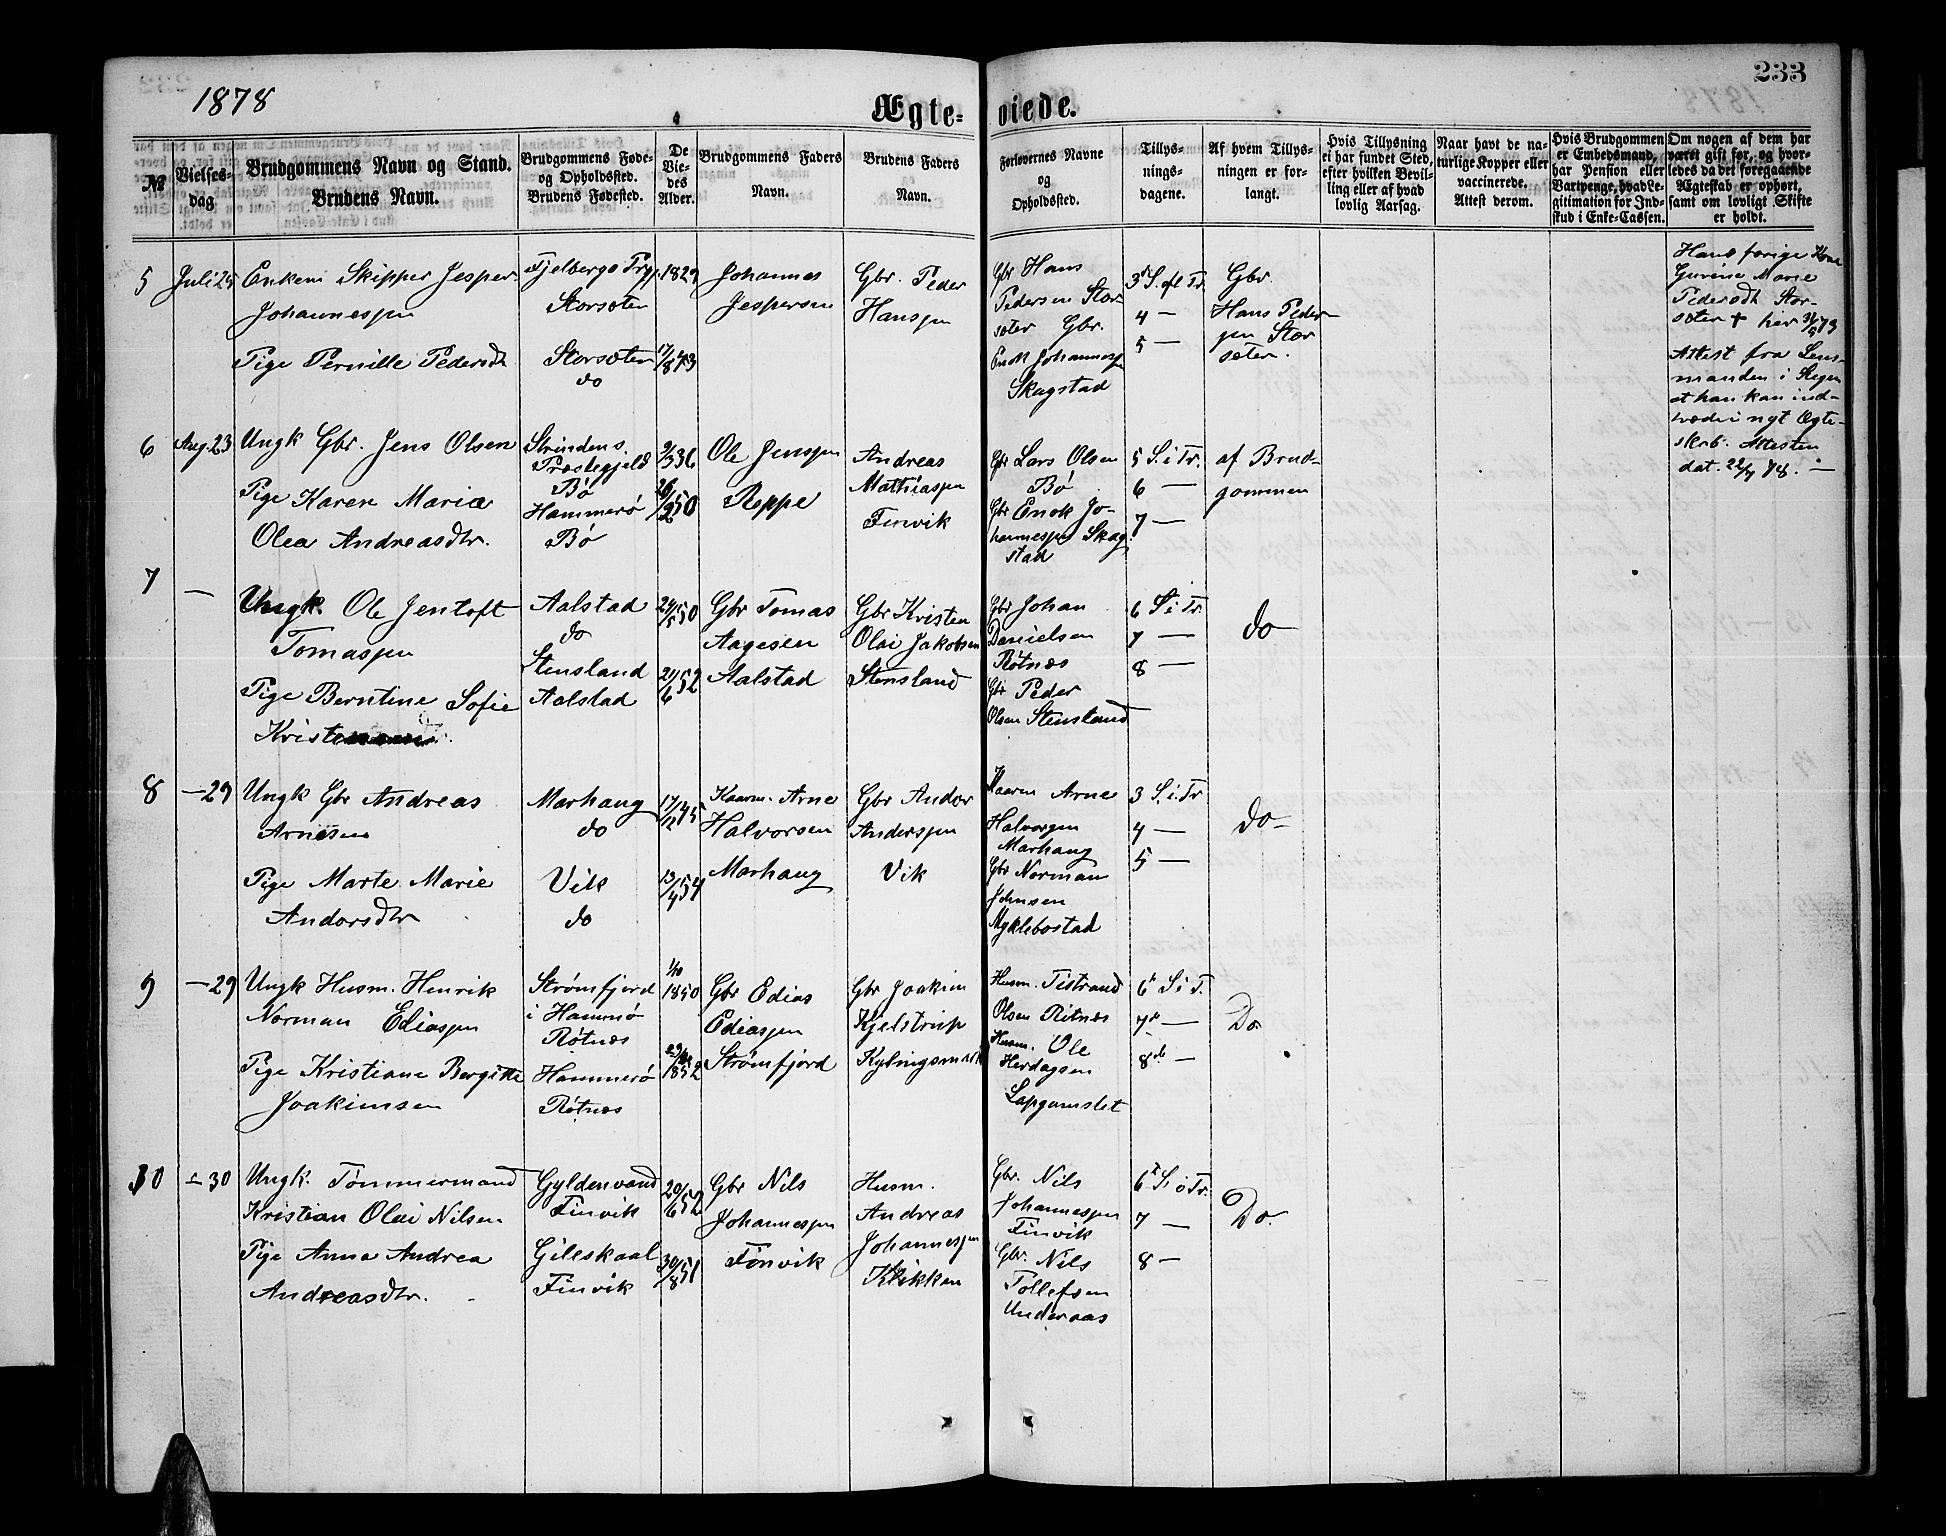 1878
Ægteviede.
233
№
Vielsesdag
Brudgommens Navn og Stand.
Brudens Navn.
Brudgommens Føde-
og Opholdssted.
Brudens Fødested.
De
Vie-
des
Alder.
Brudgommens Faders
Navn.
Brudens Faders
Navn.
Forlovernes Navne
og
Opholdssted.
Tillys-
nings-
dagene.
Af hvem Tillys-
ningen er for-
langt.
Hvis Tillysning
ei har fundet Sted,
efter hvilken Bevil-
ling eller af hvad
lovlig Aarsag.
Naar havt de na-
turlige Kopper eller
vaccinerede.
Attest derom.
Hvis Brudgommen
er Embedsmand,
har Pension eller
Vartpenge, hvad Le-
gitimation for Ind-
skud i Enke-Cassen.
Om nogen af dem har
været gift før, og hvor-
ledes da det foregaaende
Ægteskab er ophørt,
samt om lovligt Skifte
er holdt.
5
Juli 25
Enkem Skipper Jesper
Johannesen
Pige Pernille Pedersdt
Fjelbergs Prgj.
Storsøten
Storsæter
do
1829
17/8 43
Johannes
Jespersen
Gbr. Peder
Hansen
Gbr Hans
Pedersen Stor-
sæter Gbr.
Enok Johannesen
Skagstad
3d S. eft Tr.
4 —
5 —
Gbr.
Hans Peder-
sen Stor
sæter.
Hans forige Kone
Gurine Marie
Pedersdt Stor-
sæter + her 31/5 73
Attest fra Lens-
manden i Stegen
at han kan ind-
træde i nyt Ægte-
skab. Attesten
dat. 22/7 78. —
6
Aug. 23
Ungk Gbr. Jens Olsen
Pige Karen Marie
Olea Andreasdtr.
Strindens
Præstegjeld
Bø
Hammerø
Bø
9/3 36
26/2 50
Ole Jensen
Reppe
Andreas
Mathiasen
Finvik
Gbr Lars Olsen
Bø
Gbr Enok Jo-
hannesen Skag-
stad
5 S. i Tr.
6 —
7 —
af Brud-
gommen
7
—
Ungk. Ole Jentoft
Tomasen
Pige Berntine Sofie
Aalstad
do
Stensland
Aalstad
24/5 50
24/6 52
Gbr Tomas
Aagesen
Aalstad
Gbr Kristen
Olai Jakobsen
Stensland
Gbr Johan
Danielsen
Røtnæs
Gbr Peder
Olsen Stensland
6 S i Tr.
7 —
8 —
do
8
— 29
Ungk Gbr Andreas
Arnesen
Pige Marte Marie
Andorsdtr
Marhaug
do
Vik
do
17/12 45
13/4 54
Kaarm. Arne
Halvorsen
Marhaug
Gbr Andor
Andersen
Vik
Kaarm Arne
Halvorsen
Marhaug
Gbr Norman
Johnsen
Myklebostad
3 S. i Tr
4 —
5 —
do —
9
— 29
Ungk Husm. Henrik
Norman Ediasen
Pige Kristiane Bergitte
Joakimsen
Strømfjord
i Hammø
Røtnæs
Hammerø
Røtnæs
1/10
1850
1852
Gbr Edias
Ediasen
Strømfjord
Gbr Joakim
Kjelstrup
Kylingsmark
Husm. Tistrand
Olsen Ritnæs
Husm. Ole
Herdagsen
6d S i T.
7de —
8de —
Do
10
— 30
Ungk. Tømmermand
Kristian Olai Nilsen
Pige Anna Andrea
Andreasdtr.
Gyldenvand
Finvik
Gileskaal
Finvik
20/6 52
30/8 51
Gbr Nils
Johannesen
Finvik
Husm.
Andreas
Johannesen
Kvikken
Gbr. Nils
Johannesen
Finvik
Gbr. Nils
Tollefsen
Underaas
6t S i Tr.
7 —
8 —
Do.